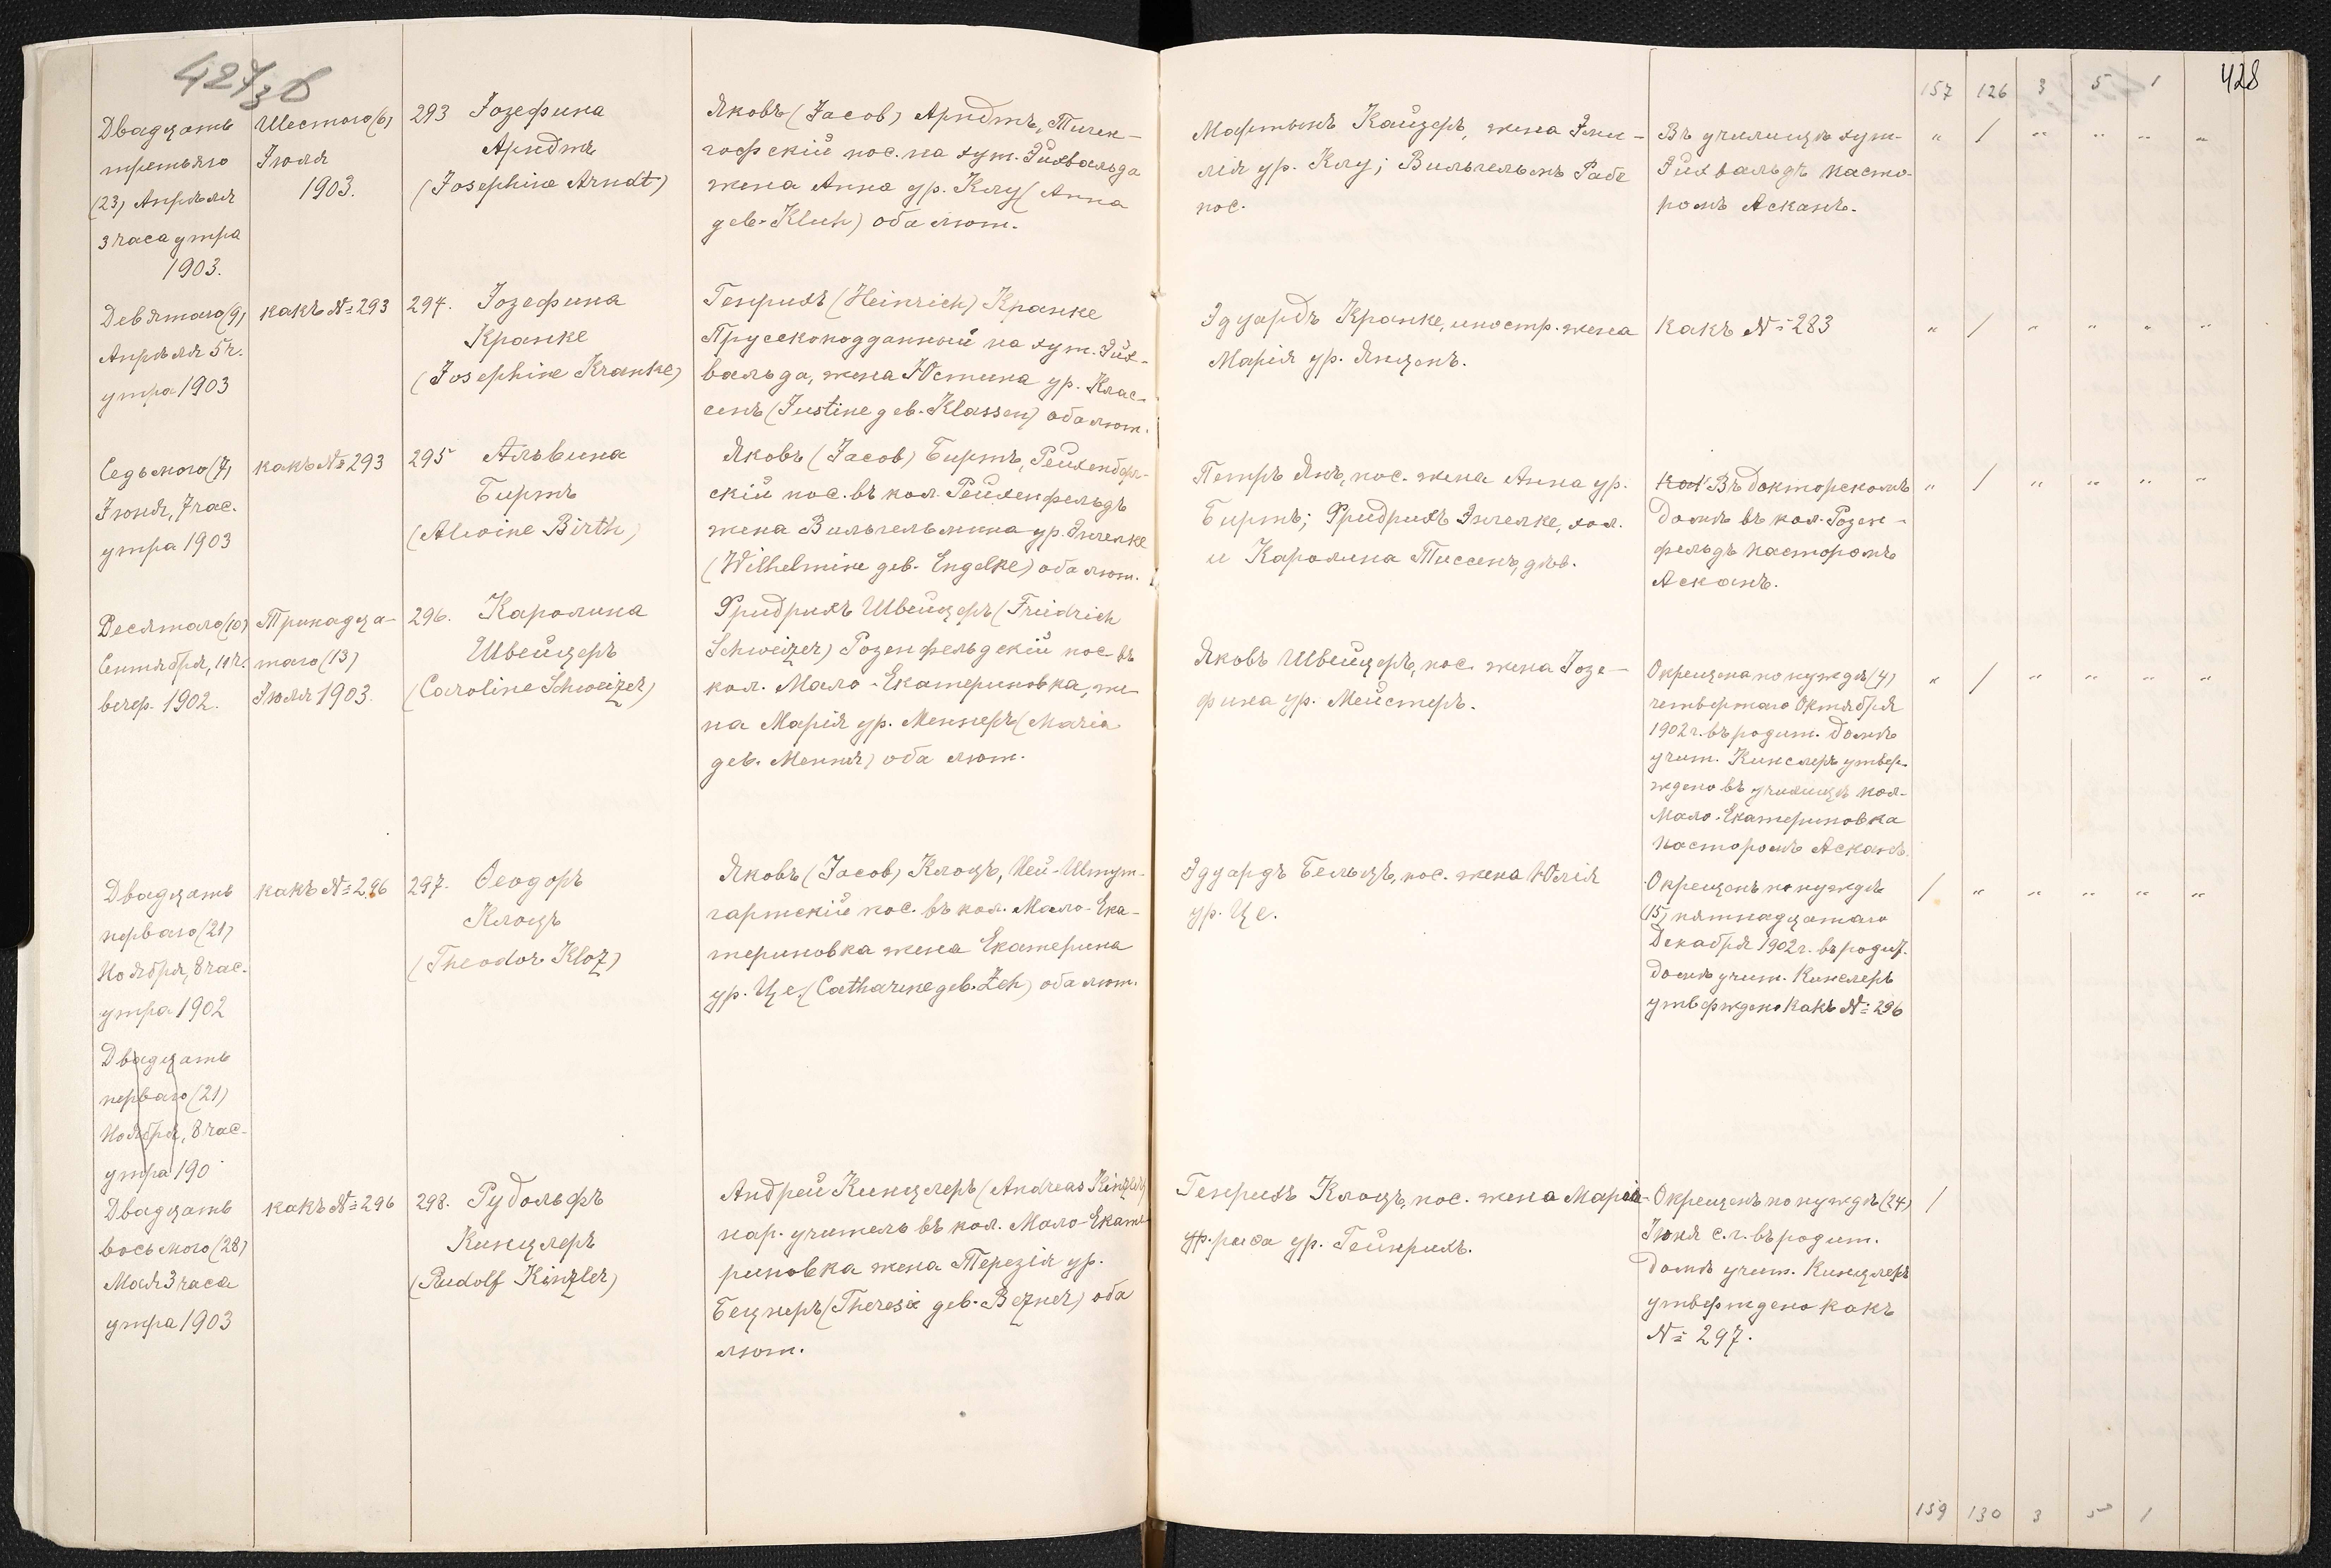 427 об
428
157 126 3 5 1
Двадцать
третьяго
(23) Апрѣля
3 часа утра
1903.
Шестого (6)
Іюля
1903.
293 Іозефина
Арндтъ
(Josephine Arndt)
Яковъ (Jacob) Арндтъ, Тиген-
гофскій пос. на хут. Эйхвальда
жена Анна ур. Клу (Anna
geb. Kluh) оба лют.
Мартынъ Кайзеръ, жена Эми-
лія ур. Клу; Вильгельмъ Рабе
пос.
Въ училищѣ хут.
Эйхвальдъ насто-
ромъ Асканъ.
" / " " " "
Девятаго (9)
Апрѣля 5 ч.
утра 1903
какъ № 293
294. Іозефина
Кранке
(Josephine Kranke)
Генрихъ (Heinrich) Кранке
Прусскоподданный на хут. Эйх-
вальда, жена Юстина ур. Клас-
сенъ (Justine geb. Klassen) оба лют.
Эдуардъ Кранке, иностр. жена
Марія ур. Янценъ.
Какъ № 283
" / " " " "
Седьмого (7)
Іюня, 7 час.
утра 1903
какъ № 293
295 Альвина
Биртъ
(Alwine Birth)
Яковъ (Jacob) Биртъ, Рейхенберг-
скій пос. въ кол. Рейхенфельдъ
жена Вильгельмина ур. Энгелке
(Wilhelmine geb. Engelke) оба лют.
Петръ Янъ, пос. жена Анна ур.
Биртъ; Фридрихъ Энгелке, хол.
и Каролина Тиссенъ, дѣв.
как Въ докторскомъ
домѣ въ кол. Розен-
фельдъ пасторомъ
Асканъ.
" / " " " "
Десятаго (10)
Сентября, 10 ч.
вечер. 1902.
Тринадца-
таго (13)
Іюля 1903.
296. Каролина
Швейцеръ
(Caroline Schweizer)
Фридрихъ Швейцеръ (Friedrich
Schweizer) Розенфельдскій пос. въ
кол. Мало-Екатериновка, же-
на Марія ур. Меннеръ (Maria
geb. Menner) оба лют.
Яковъ Швейцеръ, пос. жена Іозе-
фина ур. Мейстеръ.
Окрещена по нуждѣ (4)
четвертаго Октября
1902 г. въ родит. домѣ
учит. Кинслеръ утвер-
ждено въ училищѣ кол.
Мало-Екатериновка
пасторомъ Асканъ.
" / " " " "
Двадцать
перваго (21)
Ноября, 8 час.
утра 1902
какъ № 296
297. Ѳеодоръ
Клоцъ
(Theodor Kloz)
Яковъ (Jacob) Клоцъ, Ней-Штут-
гартскій пос. въ кол. Мало-Ека-
териновка жена Екатерина
ур. Це, (Catharine geb. Zeh) оба лют.
Эдуардъ Бельцъ, пос. жена Юлія
ур. Це.
Окрещенъ по нуждѣ
(15) пятнадцатаго
Декабря 1902 г. въ родит.
домѣ учит. Кинслеръ
утверждено какъ № 296
/ " " " " "
Двадцать
перваго (21)
Ноября, 8 час.
утра 190
Двадцать
восьмого (28)
Мая 3 часа
утра 1903
какъ № 296
298. Рудольфъ
Кинцлеръ
(Rudolf Kinzler)
Андрей Кинцлеръ (Andreas Kinzler)
нар. учитель въ кол. Мало-Екате-
риновка жена Терезія ур.
Бецнеръ (Theresie geb. Bezner) оба
лют.
Генрихъ Клоцъ, пос. жена Марга-
ур. рита ур. Гейнрихъ.
Окрещенъ по нуждѣ (24)
Іюня с. г. въ родит.
домѣ учит. Кинцлеръ
утверждено какъ
№ 297.
/
159 130 3 5 1